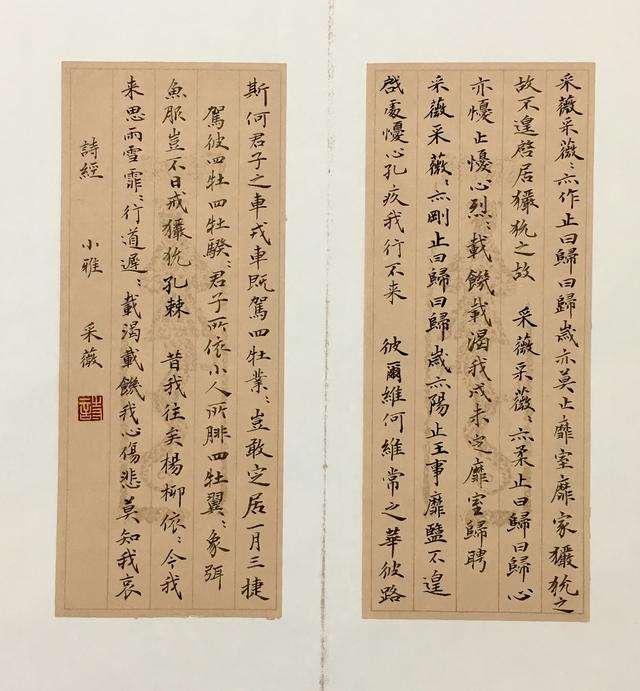 采薇采薇:亦作止曰歸曰歸歲亦莫止靡室靡家玁狁之
故不遑啓居玁狁之故 采薇采薇:亦柔止曰歸曰歸心
亦懮止懮心烈:載饑載渴我戍未定靡室歸聘
采薇采薇:亦剛止曰歸曰歸歲亦陽止王事靡盬不遑
啓處懮心孔疚我行不来 彼爾維何維常之華彼路
斯何君子之車戎車既駕四牡業:豈敢定居一月三捷
駕彼四牡四牡騤:君子所依小人所腓四牡翼:象弭
魚服豈不日戒玁狁孔棘 昔我往矣楊柳依:今我
来思雨雪霏:行道遲:載渴載饑我心傷悲莫知我哀
詩經 小雅 采薇